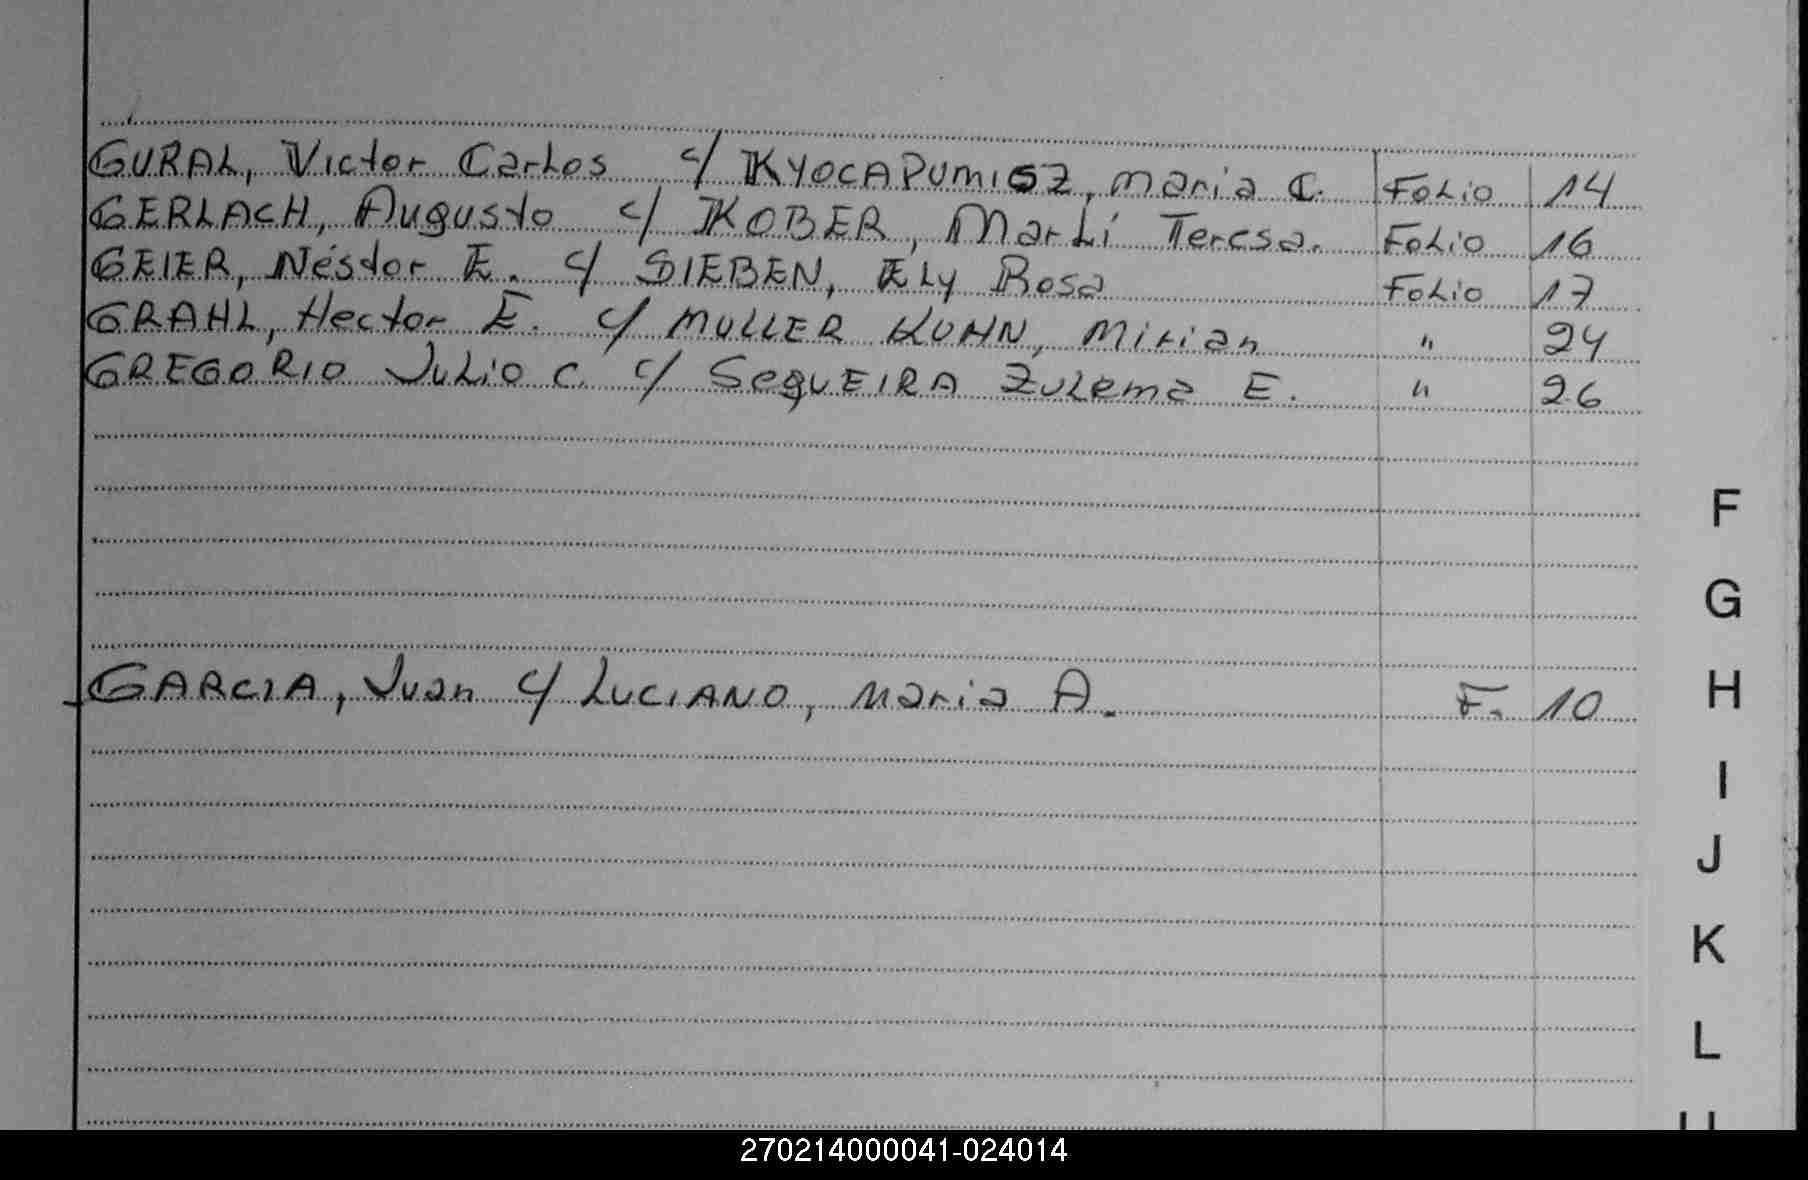 GURAL, Victor Carlos c/ KYOCAPUMISZ, Maria C. Folio 14
GERLACH, Augusto c/ KOBER, Marli Teresa. Folio 16
GEIER, Néstor E. c/ SIEBEN, Ely Rosa Folio 17
GRAHL, Hector E. c/ MULLER KUHN, Mirian " 24
GREGORIO Julio C. c/ SeqUEIRA Zulema E. " 26
F
G
GARCIA, Juan c/ LUCIANO, Maria A. F. 10
H
I
J
K
L
270214000041-024014